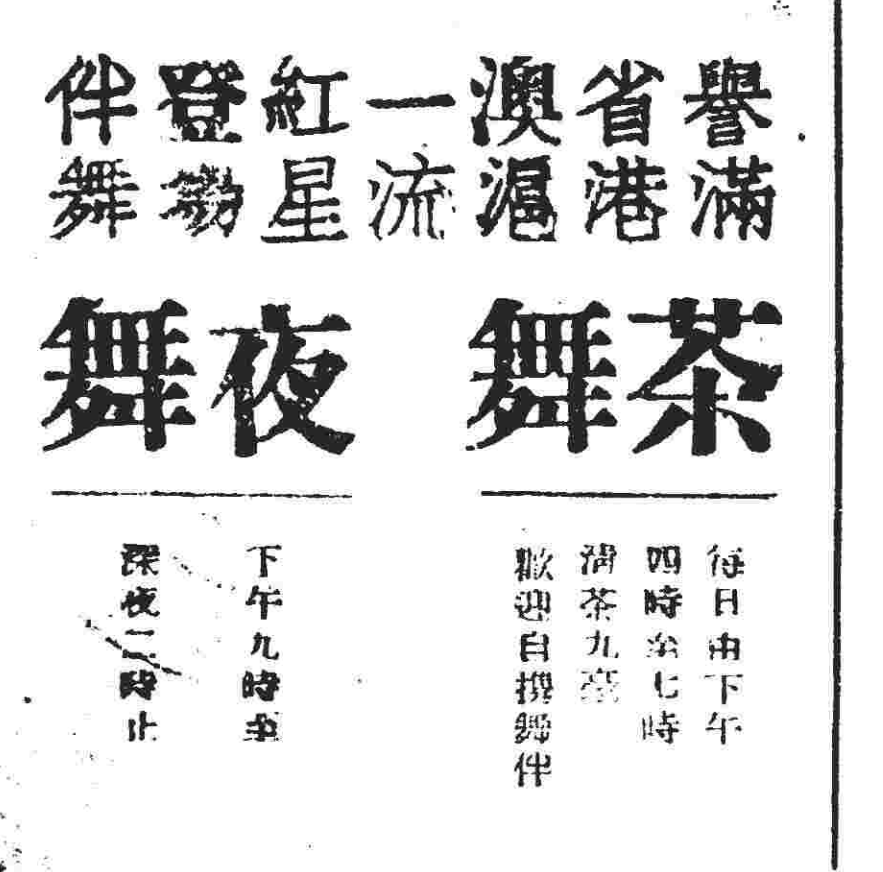 譽滿
省港
澳滬
一流
紅星
登場
伴舞
茶舞
每日由下午
四時至七時
清茶九毫
歡迎自携舞伴
夜舞
下午九時至
深夜二時止